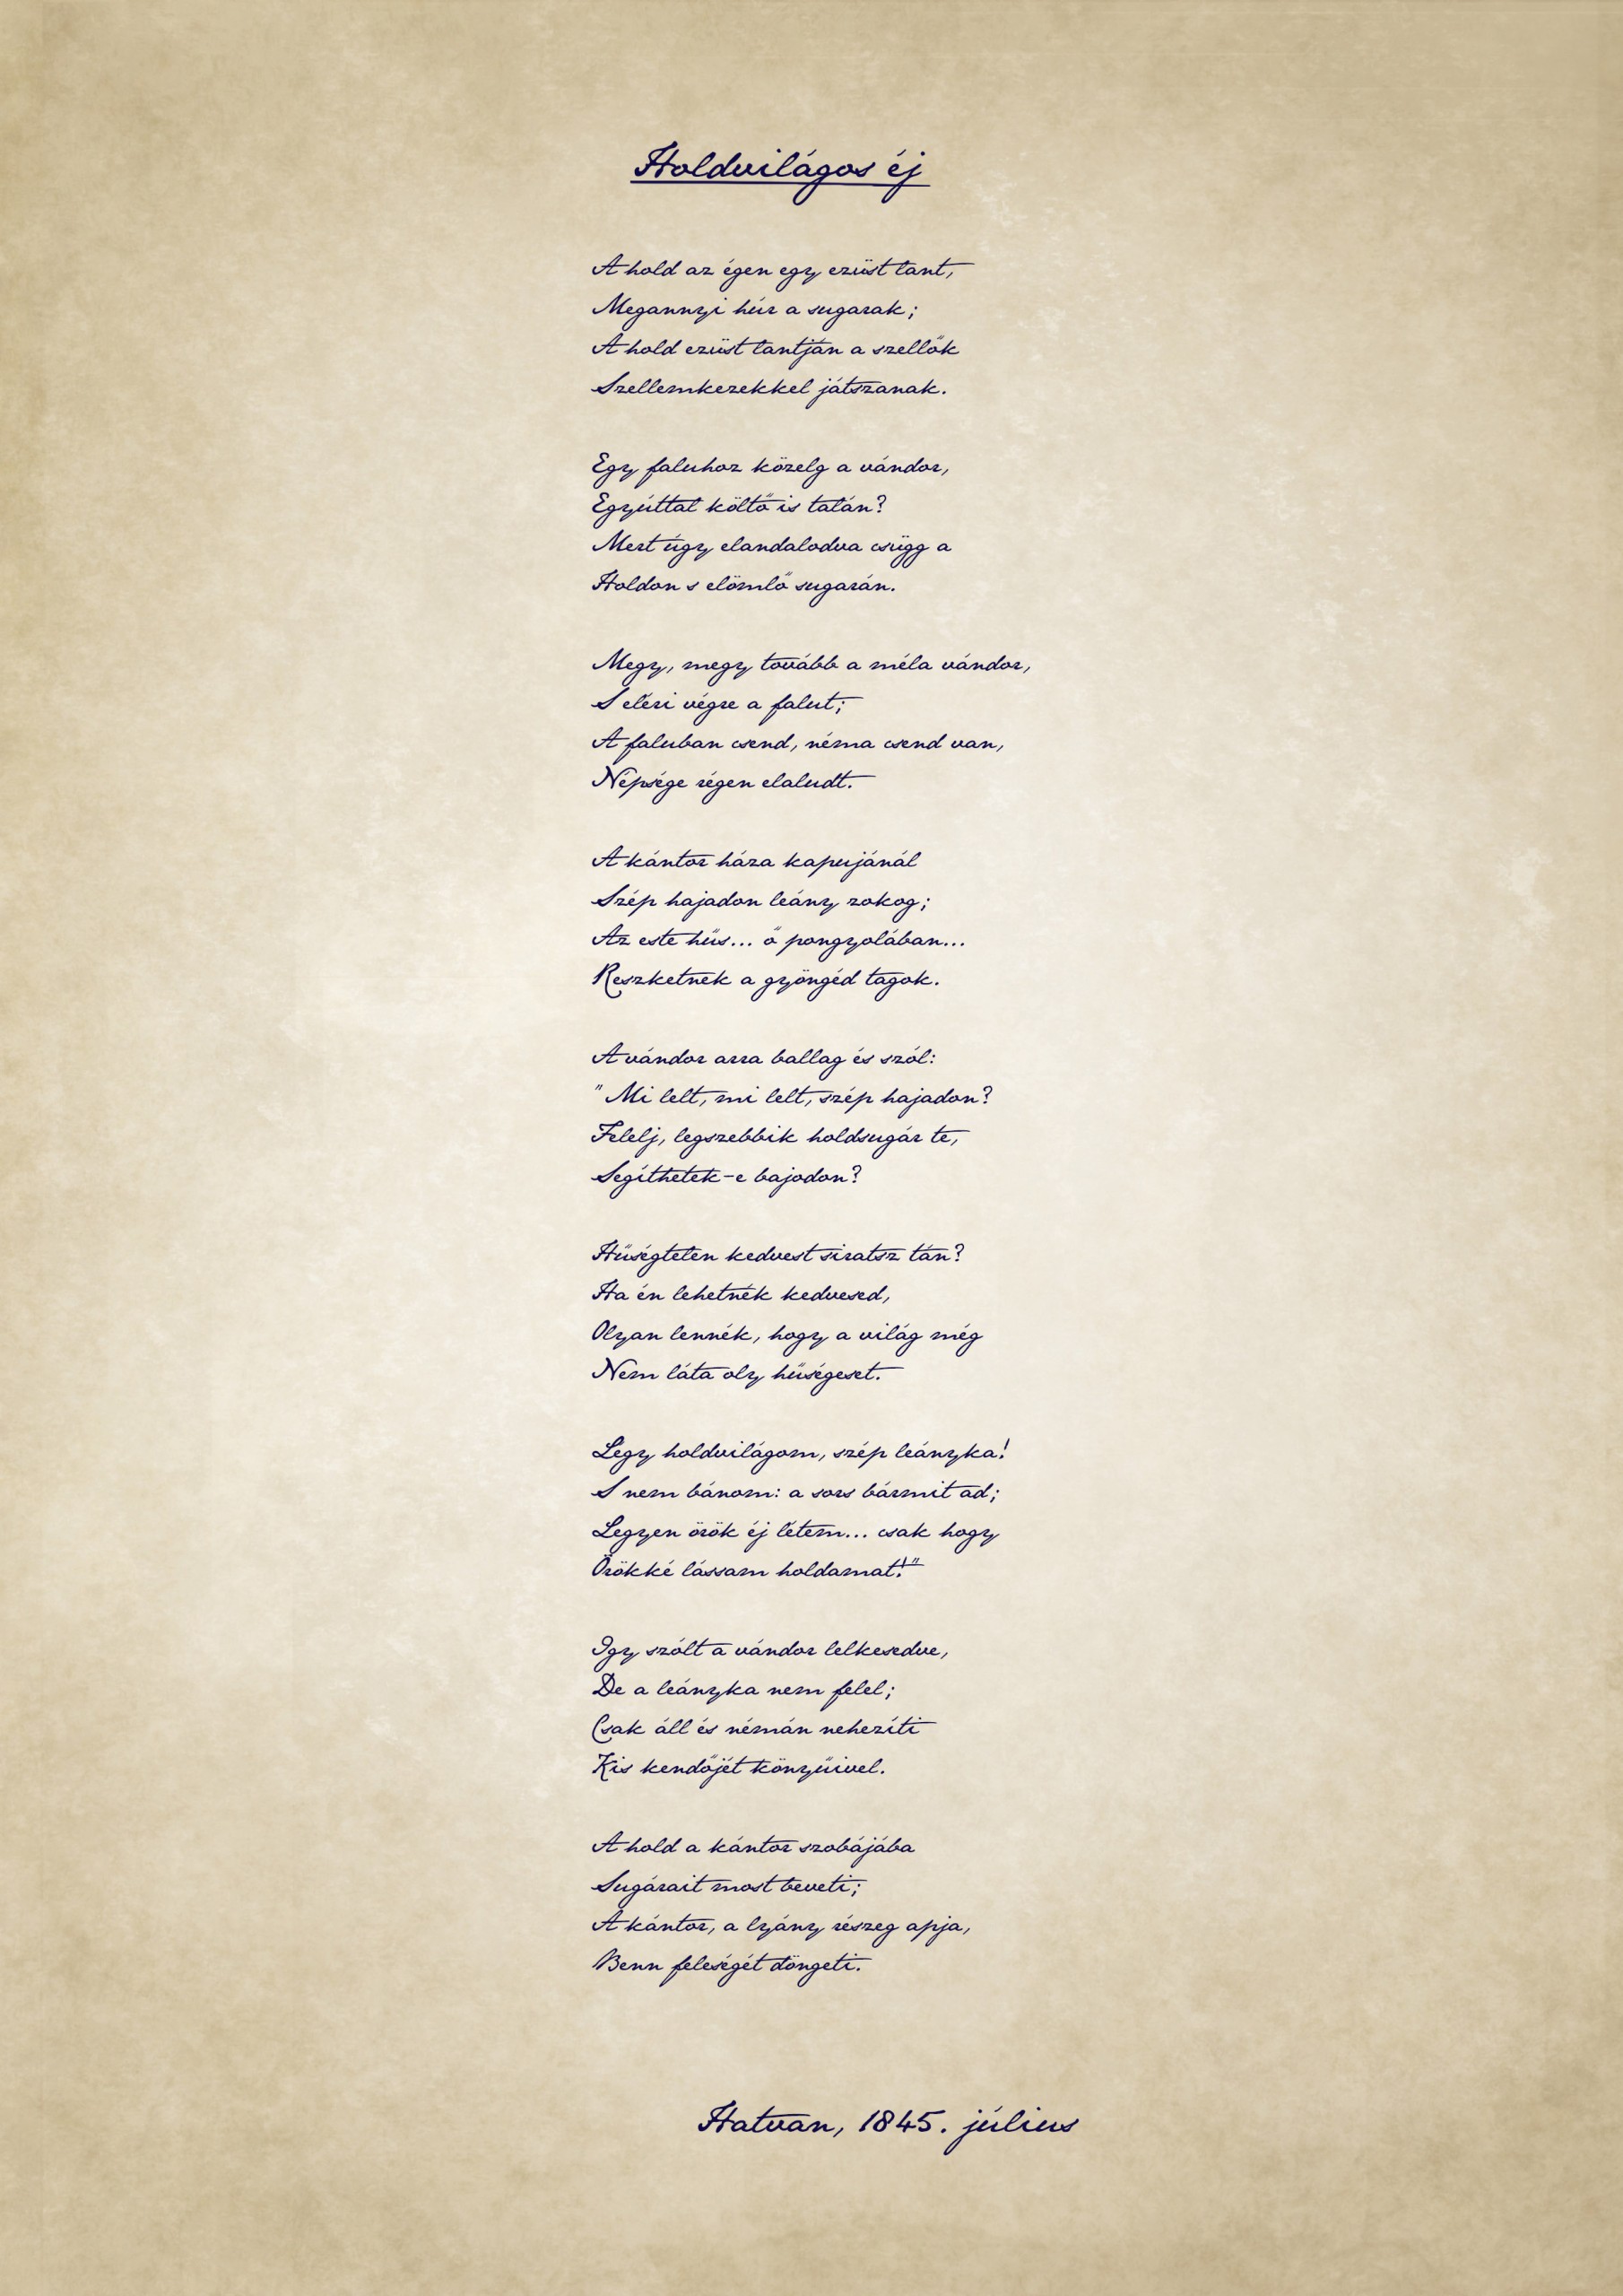 Holdvilágos éj
A hold az égen egy ezüst lant,
Megannyi húr a sugarak;
A hold ezüst lantján a szellők
Szellemkezekkel játszanak.
Egy faluhoz közelg a vándor,
Egyúttal költő is talán?
Mert úgy elandalodva csügg a
Holdon s elömlő sugarán.
Megy, megy tovább a méla vándor,
S eléri végre a falut;
A faluban csend, néma csend van,
Népsége régen elaludt.
A kántor háza kapujánál
Szép hajadon leány zokog;
Az este hűs... ő pongyolában...
Reszketnek a gyöngéd tagok.
A vándor arra ballag és szól:
"Mi lelt, mi lelt, szép hajadon?
Felelj, legszebbik holdsugár te,
Segíthetek-e bajodon?
Hűségtelen kedvest siratsz tán?
Ha én lehetnék kedvesed,
Olyan lennék, hogy a világ még
Nem láta oly hűségeset.
Légy holdvilágom, szép leányka!
S nem bánom: a sors bármit ad;
Legyen örök éj létem... csak hogy
Örökké lássam holdamat!"
Igy szólt a vándor lelkesedve,
De a leányka nem felel;
Csak áll és némán nehezíti
Kis kendőjét könyűivel.
A hold a kántor szobájába
Sugárait most beveti;
A kántor, a lyány részeg apja,
Benn feleségét döngeti.
Hatvan, 1845. július